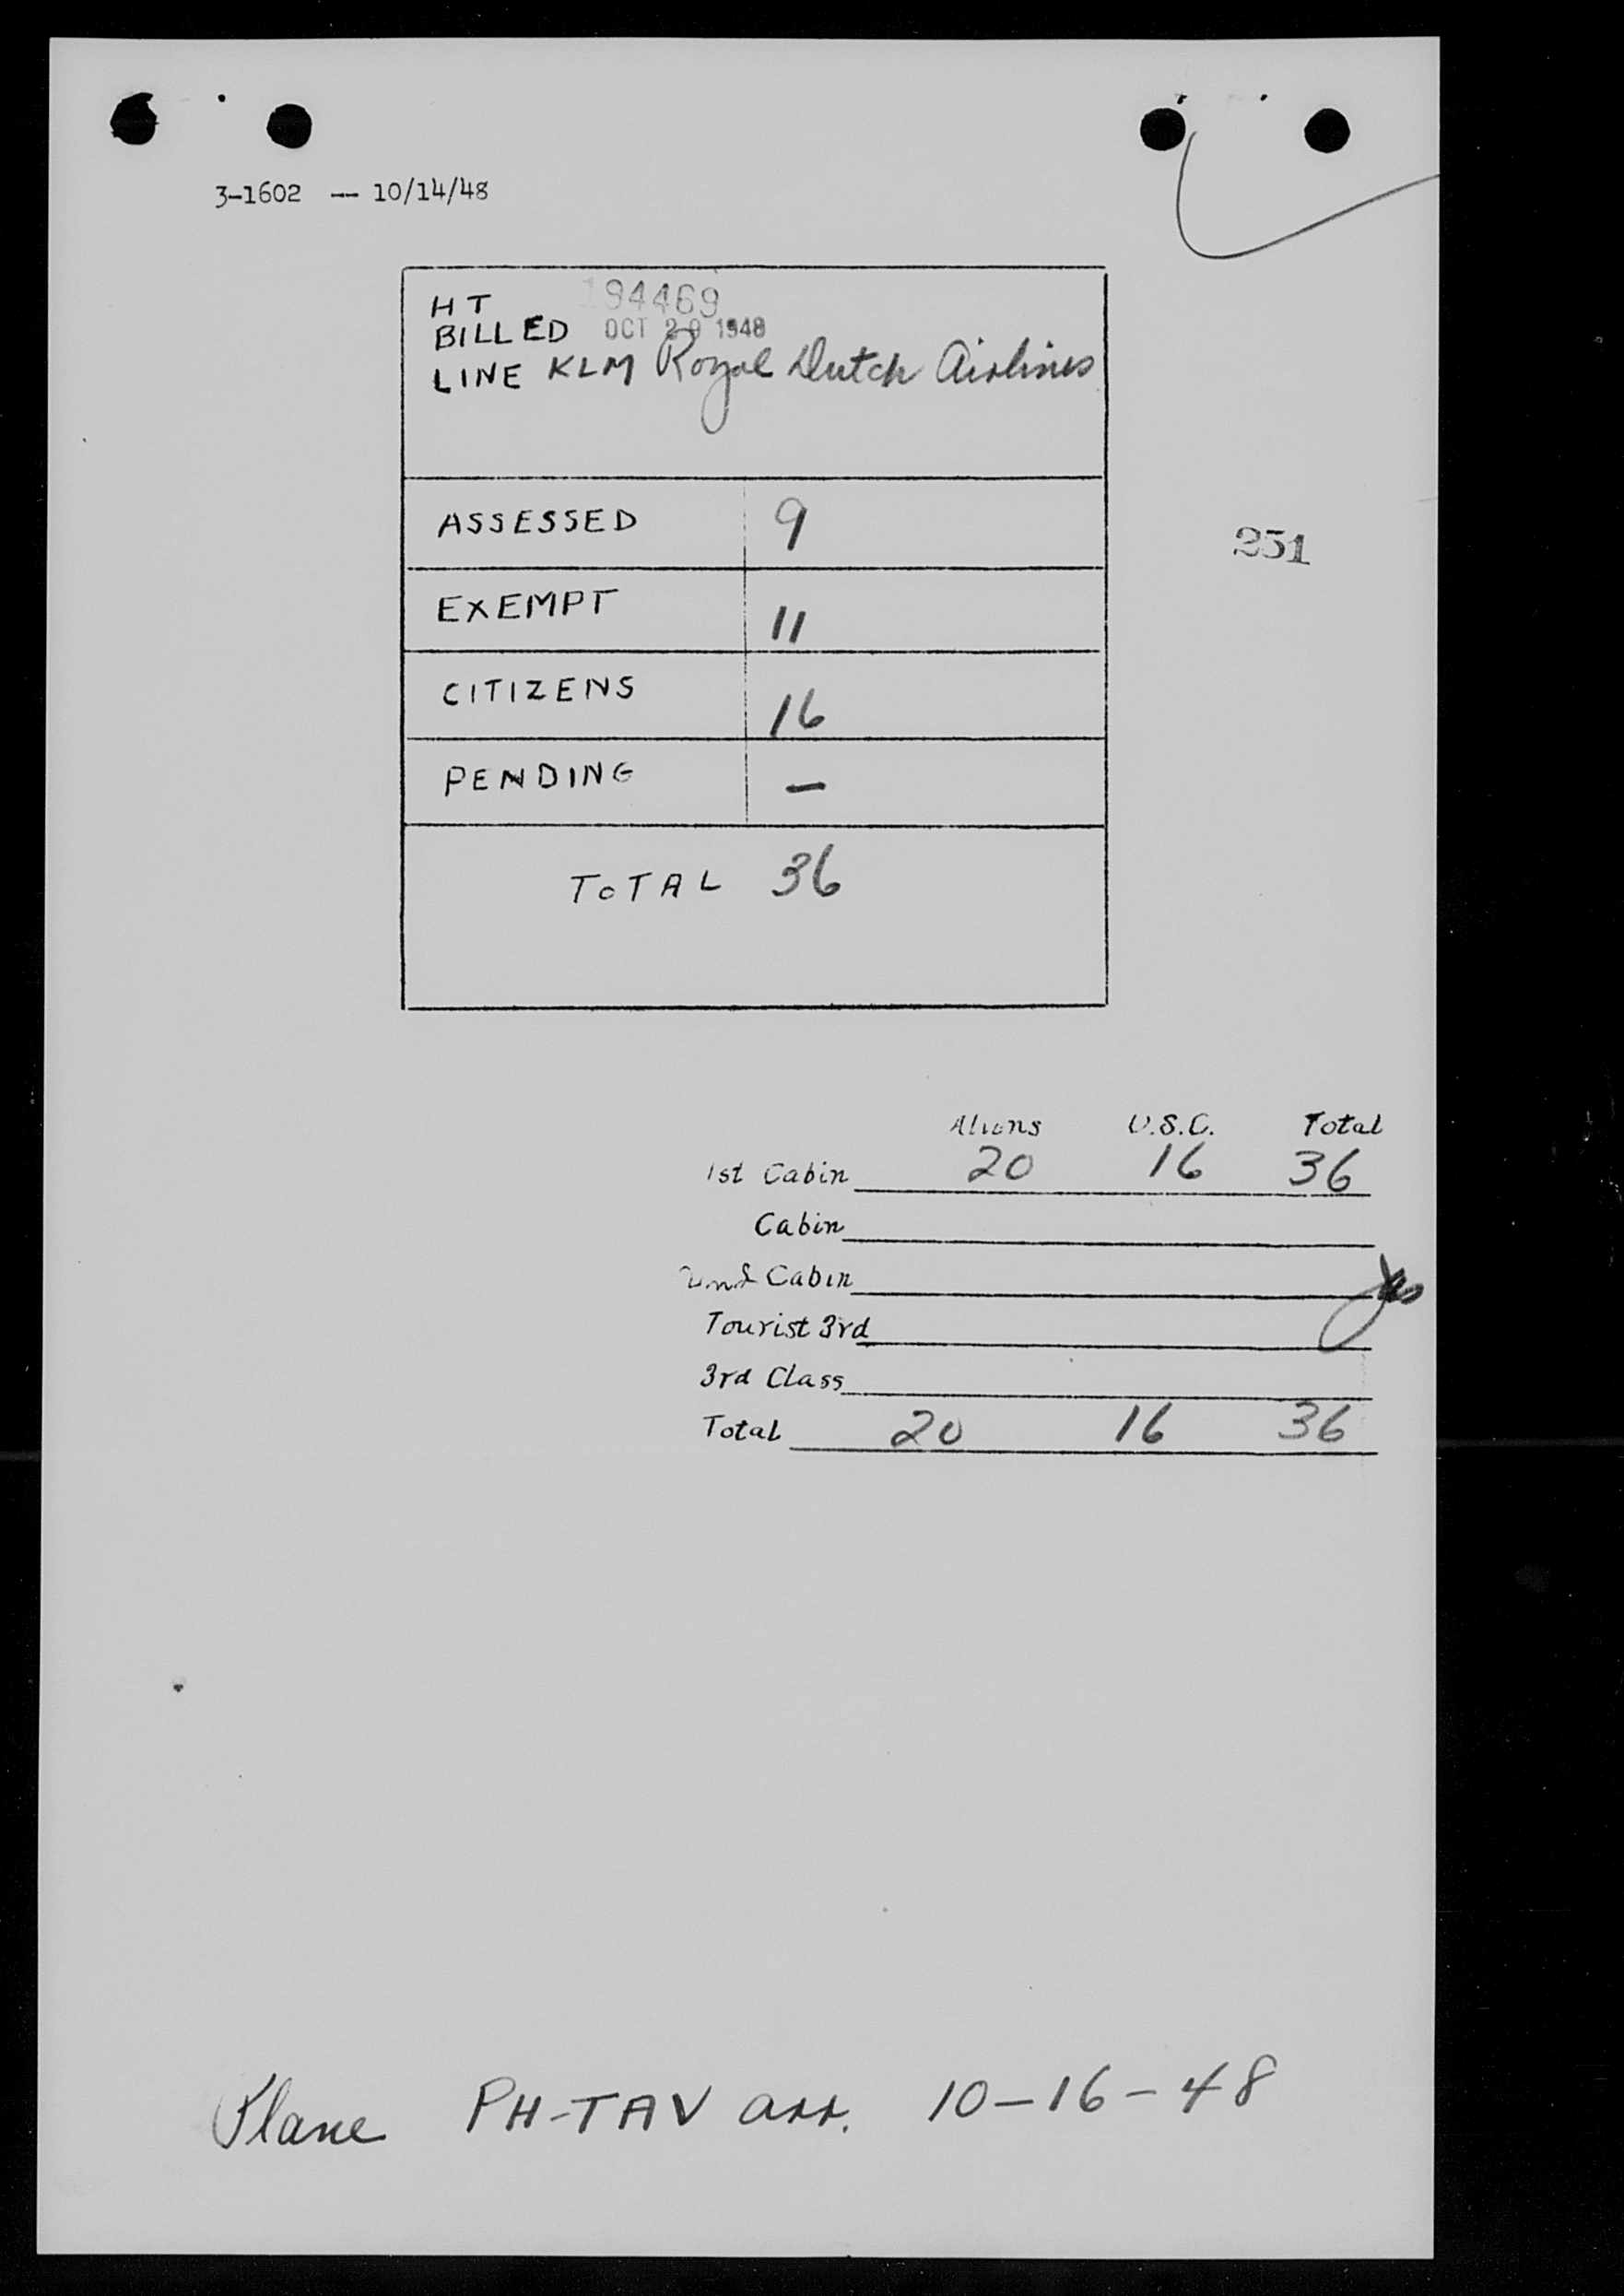 3-1602 -- 10/14/48
HT 194469
BILLED OCT 29 1948
LINE KLM Royal Dutch Airlines
ASSESSED 9
251
EXEMPT 11
CITIZENS 16
PENDING —
TOTAL 36
Aliens U.S.C. Total
1st Cabin 20 16 36
Cabin
2nd Cabin
Tourist 3rd
3rd Class
Total 20 16 36
Plane PH-TAV arr. 10-16-48